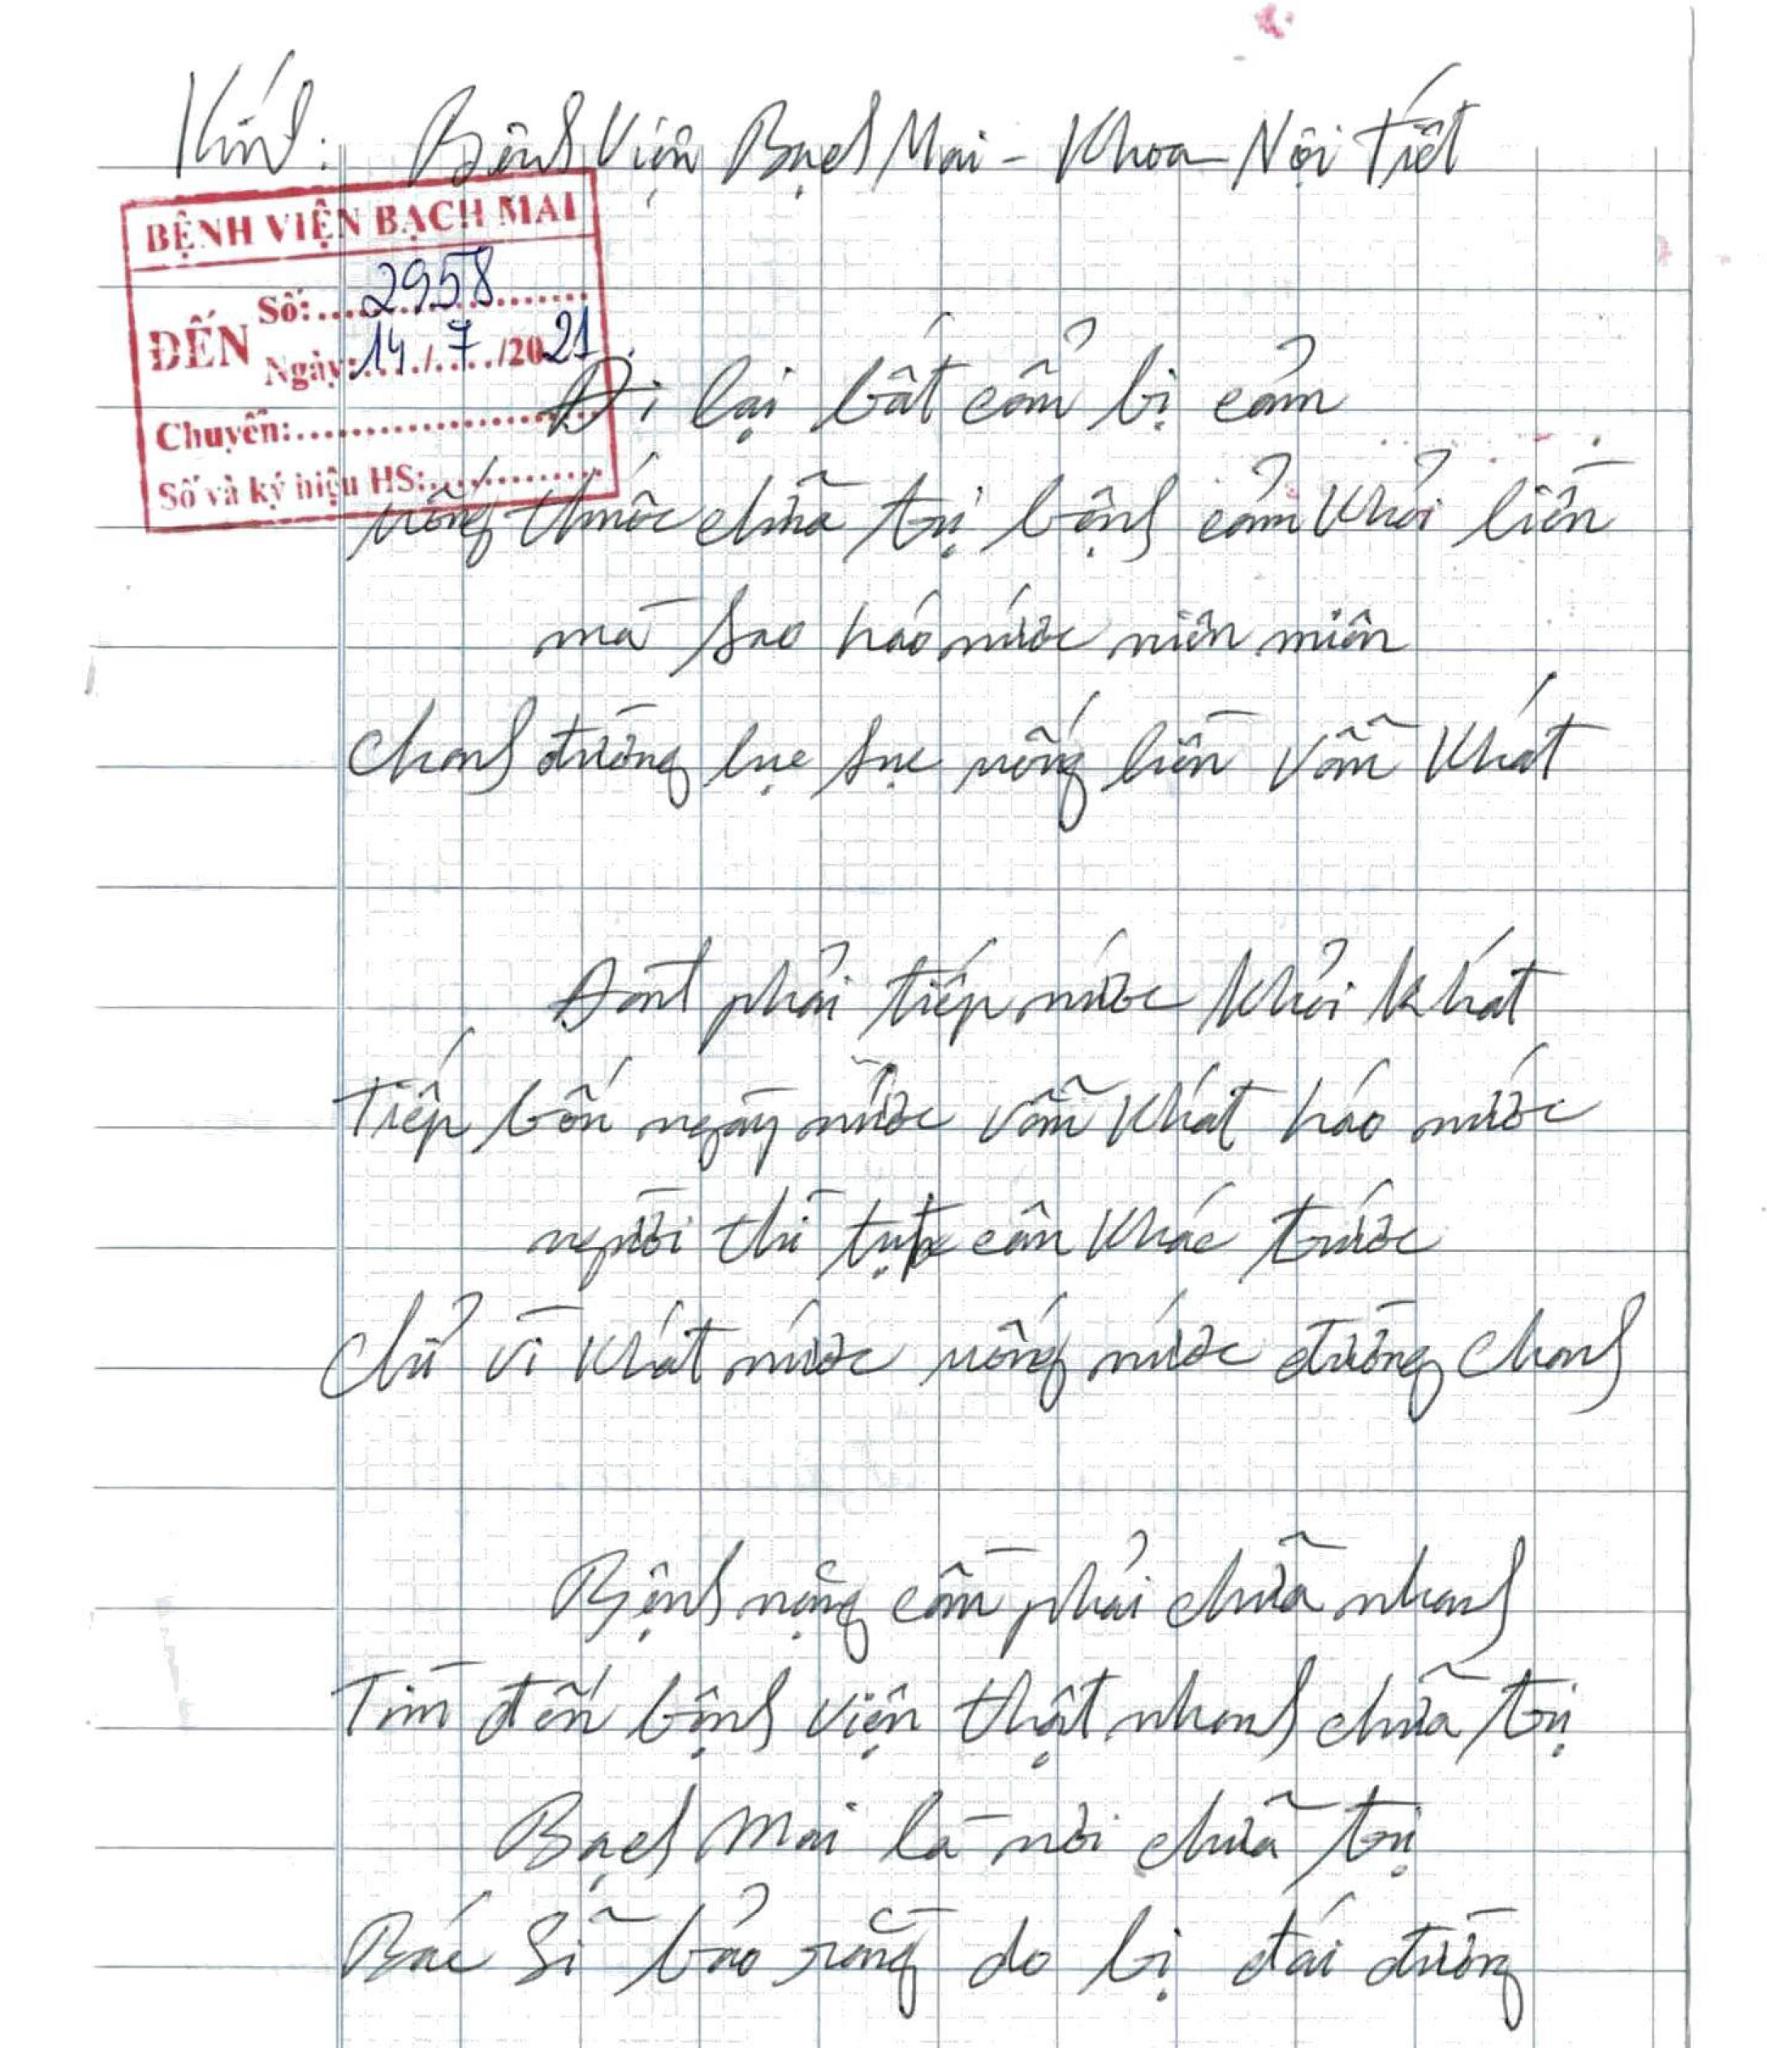 Kính: Bệnh Viện Bạch Mai - Khoa Nội Tiết
BỆNH VIỆN BẠCH MAI
ĐẾN
Số: 2958
Ngày: 14 / 7 / 2021
Chuyển:
Số và ký hiệu HS:
Đi lại bất cẩn bị cảm
uống thuốc chữa trị bệnh cảm khỏi liền
mà sao háo nước miên miên
chanh đường lục sục uống liền vẫn khát
Đành phải tiếp nước khỏi khát
Tiếp bốn ngày nước vẫn khát háo nước
người thì tụt cân khác trước
chỉ vì khát nước uống nước đường chanh
Bệnh nặng cần phải chữa nhanh
Tìm đến bệnh viện thật nhanh chữa trị
Bạch Mai là nơi chữa trị
Bác Sĩ bảo rằng do bị đái đường